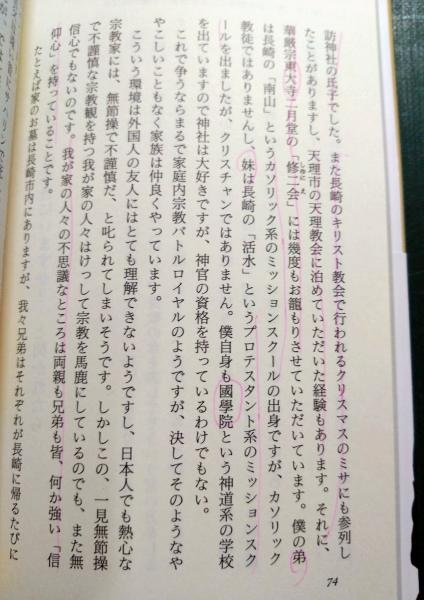 訪神社の氏子でした。また長崎のキリスト教会で行われるクリスマスのミサにも参列し
たことがありますし、天理市の天理教会に泊めていただいた経験もあります。それに、
華厳宗東大寺二月堂の「修二会」には幾度もお籠もりさせていただいています。僕の弟
は長崎の「南山」というカソリック系のミッションスクールの出身ですが、カソリック
教徒ではありませんし、妹は長崎の「活水」というプロテスタント系のミッションスク
ールを出ましたが、クリスチャンではありません。僕自身も國學院という神道系の学校
を出ていますので神社は大好きですが、神官の資格を持っているわけでもない。
これで争うならまるで家庭内宗教バトルロイヤルのようですが、決してそのようなや
やこしいこともなく家族は仲良くやっています。
こういう環境は外国人の友人にはとても理解できないようですし、日本人でも熱心な
宗教家には、無節操で不謹慎だ、と叱られてしまいそうです。しかしこの、一見無節操
で不謹慎な宗教観を持つ我が家の人々はけっして宗教を馬鹿にしているのでも、また無
信心でもないのです。我が家の人々の不思議なところは両親も兄弟も皆、何か強い「信
仰心」を持っていることです。
たとえば家のお墓は長崎市内にありますが、我々兄弟はそれぞれが長崎に帰るたびに
74